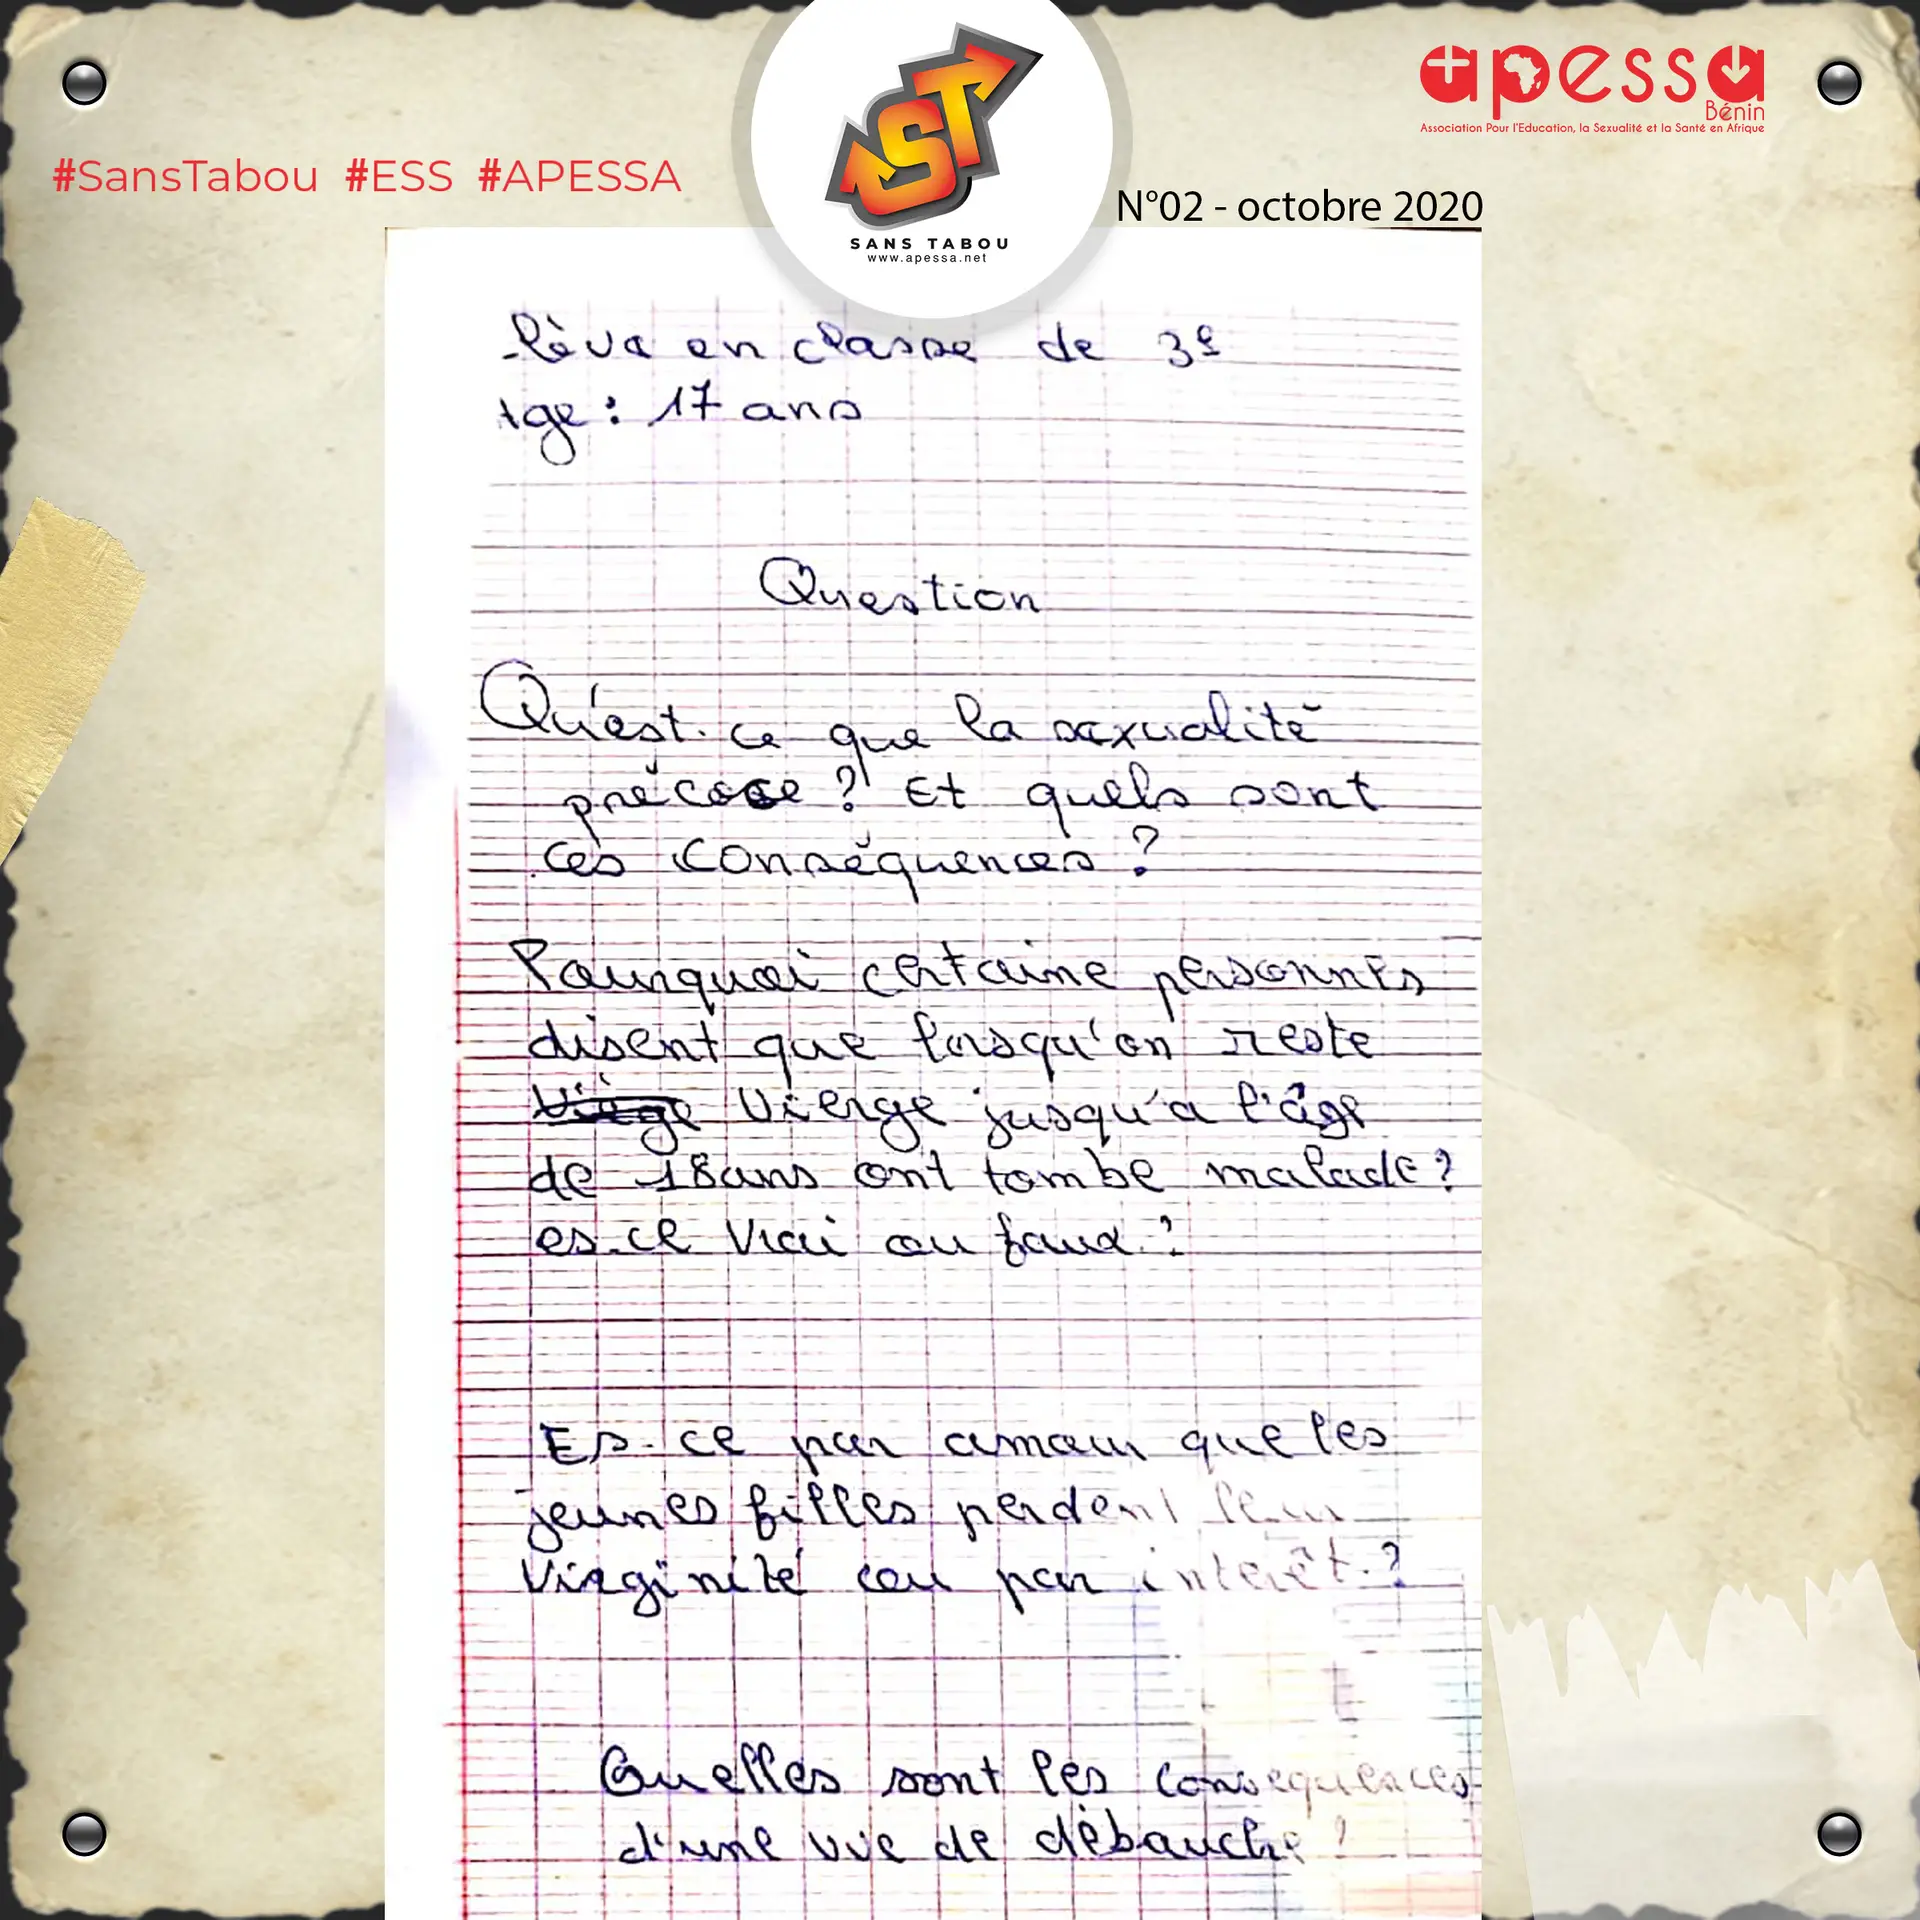 apessa
Bénin
Association Pour l'Education, la Sexualité et la Santé en Afrique
#SansTabou #ESS #APESSA
ST
SANS TABOU
www.apessa.net
N°02 - octobre 2020
lève en classe de 3e
ge : 17 ans
Question
Qu'est-ce que la sexualité
précoce ? Et quels sont
ces conséquences ?
Pourquoi certaine personnes
disent que lorsqu'on reste
Vierge jusqu'a l'âge
de 18ans ont tombe malade ?
es-ce Vrai ou faux ?
Es-ce par amour que les
jeunes filles perdent leur
Virginité ou par intérêt ?
Quelles sont les consequences
d'une vie de débauche ?